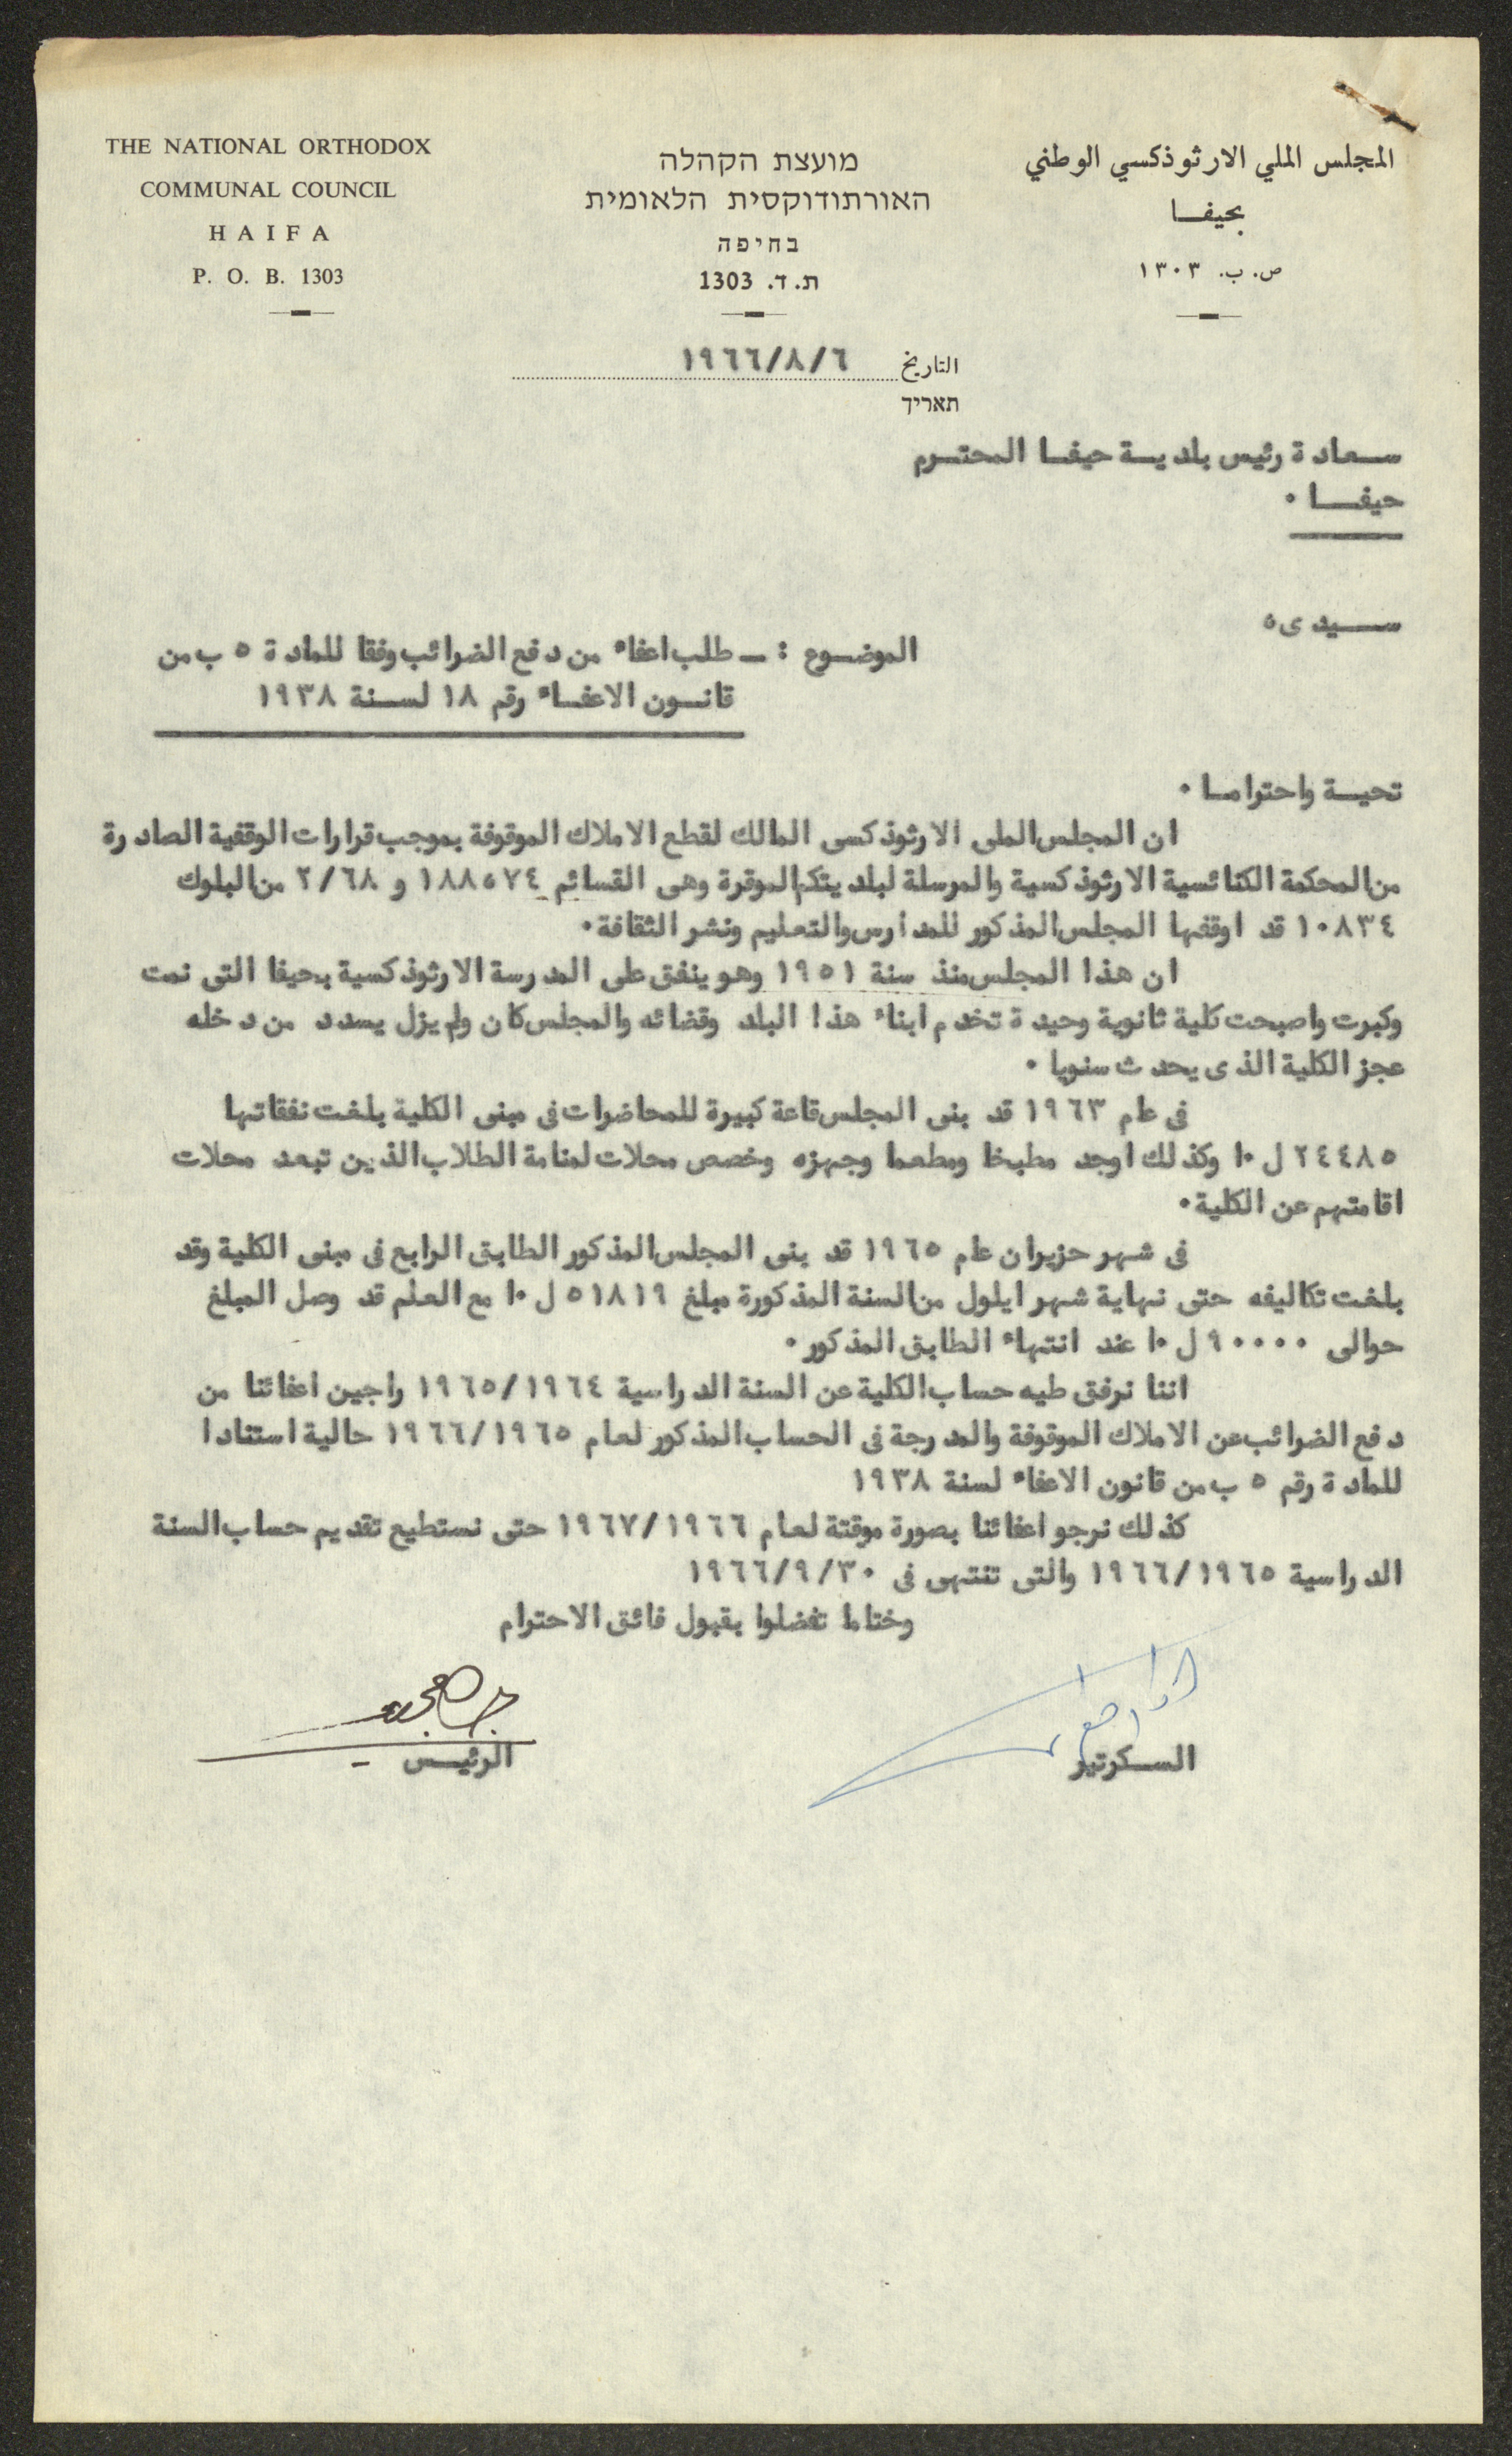 THE NATIONAL ORTHODOX
COMMUNAL COUNCIL
HAIFA
P. O. B. 1303
מועצת הקהלה
האורתודוקסית הלאומית
בחיפה
ת.ד. 1303
المجلس الملي الارثوذكسي الوطني
بحيفا
ص. ب. ١٣٠٣
التاريخ ١٩٦٦/٨/٦
תאריך
سعادة رئيس بلدية حيفا المحترم
حيفا ٠
سيدى٥
الموضوع : ــ طلب اعفاء من دفع الضرائب وفقا للمادة ٥ ب من
قانون الاعفاء رقم ١٨ لسنة ١٩٣٨
تحية واحتراما ٠
ان المجلس الملى الارثوذكسى المالك لقطع الاملاك الموقوفة بموجب قرارات الوقفية الصادرة
من المحكمة الكنائسية الارثوذكسية والمرسلة لبلديتكم الموقرة وهى القسائم ١٨٨٥٧٤ و ٢/٦٨ من البلوك
١٠٨٣٤ قد اوقفها المجلس المذكور للمدارس والتعليم ونشر الثقافة٠
ان هذا المجلس منذ سنة ١٩٥١ وهو ينفق على المدرسة الارثوذكسية بحيفا التى نمت
وكبرت واصبحت كلية ثانوية وحيدة تخدم ابناء هذا البلد وقضائه والمجلس كان ولم يزل يسدد من دخله
عجز الكلية الذى يحدث سنويا ٠
فى عام ١٩٦٣ قد بنى المجلس قاعة كبيرة للمحاضرات فى مبنى الكلية بلغت نفقاتها
٢٤٤٨٥ ل ٠ا وكذلك اوجد مطبخا ومطعما وجهزه وخصص محلات لمنامة الطلاب الذين تبعد محلات
اقامتهم عن الكلية٠
فى شهر حزيران عام ١٩٦٥ قد بنى المجلس المذكور الطابق الرابع فى مبنى الكلية وقد
بلغت تكاليفه حتى نهاية شهر ايلول من السنة المذكورة مبلغ ٥١٨١٩ ل ٠ا مع العلم قد وصل المبلغ
حوالى ٩٠٠٠٠ ل ٠ا عند انتهاء الطابق المذكور ٠
اننا نرفق طيه حساب الكلية عن السنة الدراسية ١٩٦٥/١٩٦٤ راجين اعفائنا من
دفع الضرائب عن الاملاك الموقوفة والمدرجة فى الحساب المذكور لعام ١٩٦٦/١٩٦٥ حالية استنادا
للمادة رقم ٥ ب من قانون الاعفاء لسنة ١٩٣٨
كذلك نرجو اعفائنا بصورة موقتة لعام ١٩٦٧/١٩٦٦ حتى نستطيع تقديم حساب السنة
الدراسية ١٩٦٦/١٩٦٥ والتى تنتهى فى ١٩٦٦/٩/٣٠
وختاما تفضلوا بقبول فائق الاحترام
السكرتير
الرئيس